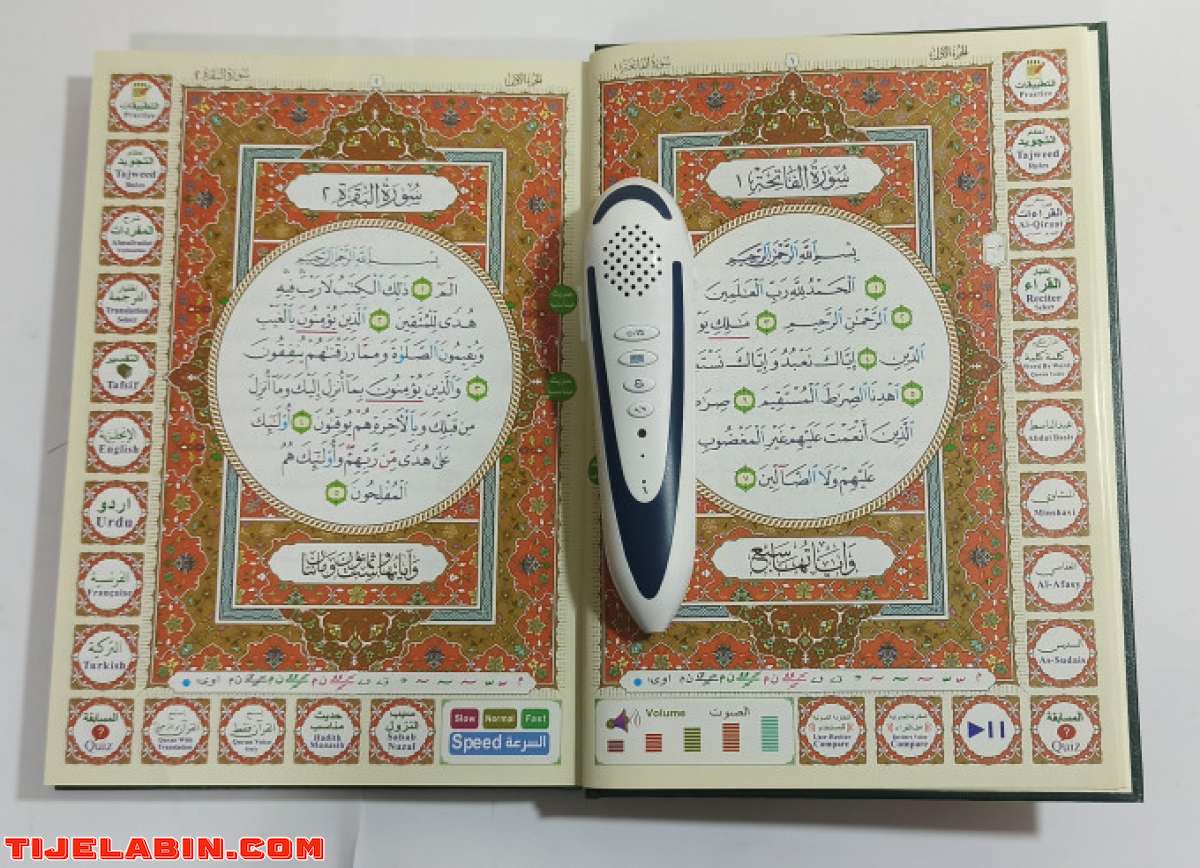 الجزء الأول
سورة الفاتحة ١
١
سُورَةُ الفَاتِحَةِ ١
بِسْمِ اللَّهِ الرَّحْمَٰنِ الرَّحِيمِ
١ الْحَمْدُ لِلَّهِ رَبِّ الْعَالَمِينَ
٢ الرَّحْمَٰنِ الرَّحِيمِ ٣ مَلِكِ يَو
الدِّينِ ٤ إِيَّاكَ نَعْبُدُ وَإِيَّاكَ
٥ اهْدِنَا الصِّرَٰطَ الْمُسْتَقِيمَ ٦
الَّذِينَ أَنْعَمْتَ عَلَيْهِمْ غَيْرِ الْمَغْضُوبِ
عَلَيْهِمْ وَلَا الضَّالِّينَ ٧
وَآيَاتُهَا سَبْعٌ
التطبيقات
Practice
أحكام
التجويد
Tajweed
Rules
القراءات
Al-Qiraat
اختيار
القراء
Reciter
Select
كلمة كلمة
Word By Word
عبدالباسط
Abdul Basit
المنشاوي
Minshavi
العفاسي
Al-Afasy
السديس
As-Sudais
المسابقة
?
Quiz
Volume الصوت
User Reciter
Compare
Reciters Voice
Compare
الجزء الأول
سورة البقرة ٢
٢
سُورَةُ البَقَرَةِ ٢
بِسْمِ اللَّهِ الرَّحْمَٰنِ الرَّحِيمِ
الٓمٓ ١ ذَٰلِكَ الْكِتَٰبُ لَا رَيْبَ فِيهِ
هُدًى لِلْمُتَّقِينَ ٢ الَّذِينَ يُؤْمِنُونَ بِالْغَيْبِ
وَيُقِيمُونَ الصَّلَوٰةَ وَمِمَّا رَزَقْنَٰهُمْ يُنفِقُونَ
٣ وَالَّذِينَ يُؤْمِنُونَ بِمَا أُنزِلَ إِلَيْكَ وَمَا أُنزِلَ
مِن قَبْلِكَ وَبِالْآخِرَةِ هُمْ يُوقِنُونَ ٤ أُولَٰئِكَ
عَلَىٰ هُدًى مِّن رَّبِّهِمْ وَأُولَٰئِكَ هُمُ
الْمُفْلِحُونَ ٥
وَآيَاتُهَا سِتٌّ وَثَمَانُونَ وَمِائَتَانِ
التطبيقات
Practice
أحكام
التجويد
Tajweed
Rules
شرح
المفردات
اختيار
الترجمة
Translation
Select
التفسير
Tafsir
الإنجليزية
English
اردو
Urdu
الفرنسية
Française
التركية
Turkish
المسابقة
?
Quiz
Quran With
Translation
Quran Voice
Only
حديث
مناسب
Hadith
Munasib
سبب
النزول
Sabab
Nazul
Slow Normal Fast
Speed السرعة
TIJELABIN.COM